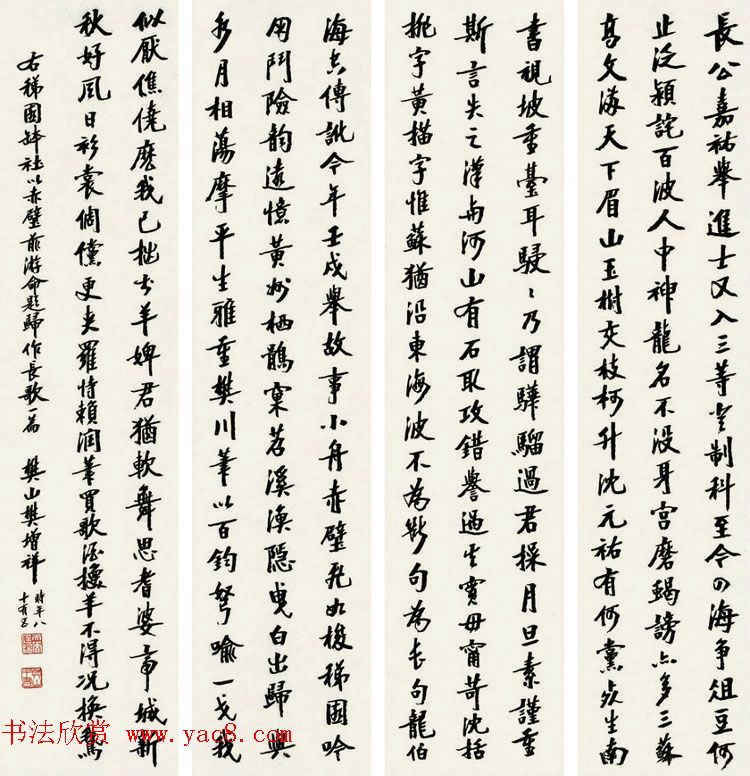 長公嘉祐舉進士又入三等制科至今四海爭俎豆何
止泛穎詫百波人中神龍名不沒身宮磨蝎謗亦多三蘇
高文滿天下眉山玉樹交枝柯升沈元祐有何黨生南
書視坡重臺耳駸々乃謂驊騮過君操月旦素謹重
斯言失之漢与河山有石取攻錯譽過失實毋甯苛沈括
挑字黃描字惟蘇猶沿東海波不為斷句為長句龍伯
海上傳訛今年壬戌舉故事小舟赤壁飛如梭稊園吟
鬥險韵遠憶黃州栖鶻窠苕溪漁隱曳白出歸興
月相蕩摩平生雅重樊川筆以百鈞弩喻一戈我
似厭僬僥麼我已拙書羊婢君猶軟舞思耆婆帝城新
秋好風日衫裳倜儻更夾羅恃賴潤筆買歌酒擾羊不得況換鵞
右稊園鉢社以赤壁前游命題歸作長歌一篇 樊山樊增祥
時年八
十有五
书法欣赏
www.yac8.com